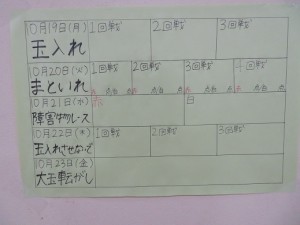 10月19日(月) 1回戦 2回戦 3回戦
玉入れ
10月20日(火) 1回戦 2回戦 3回戦 4回戦
まといれ 点 点 点 点
10月21日(水)
障害物レース
10月22日(木) 1回戦 2回戦 3回戦
玉入れさせないで
10月23日(金)
大玉転がし